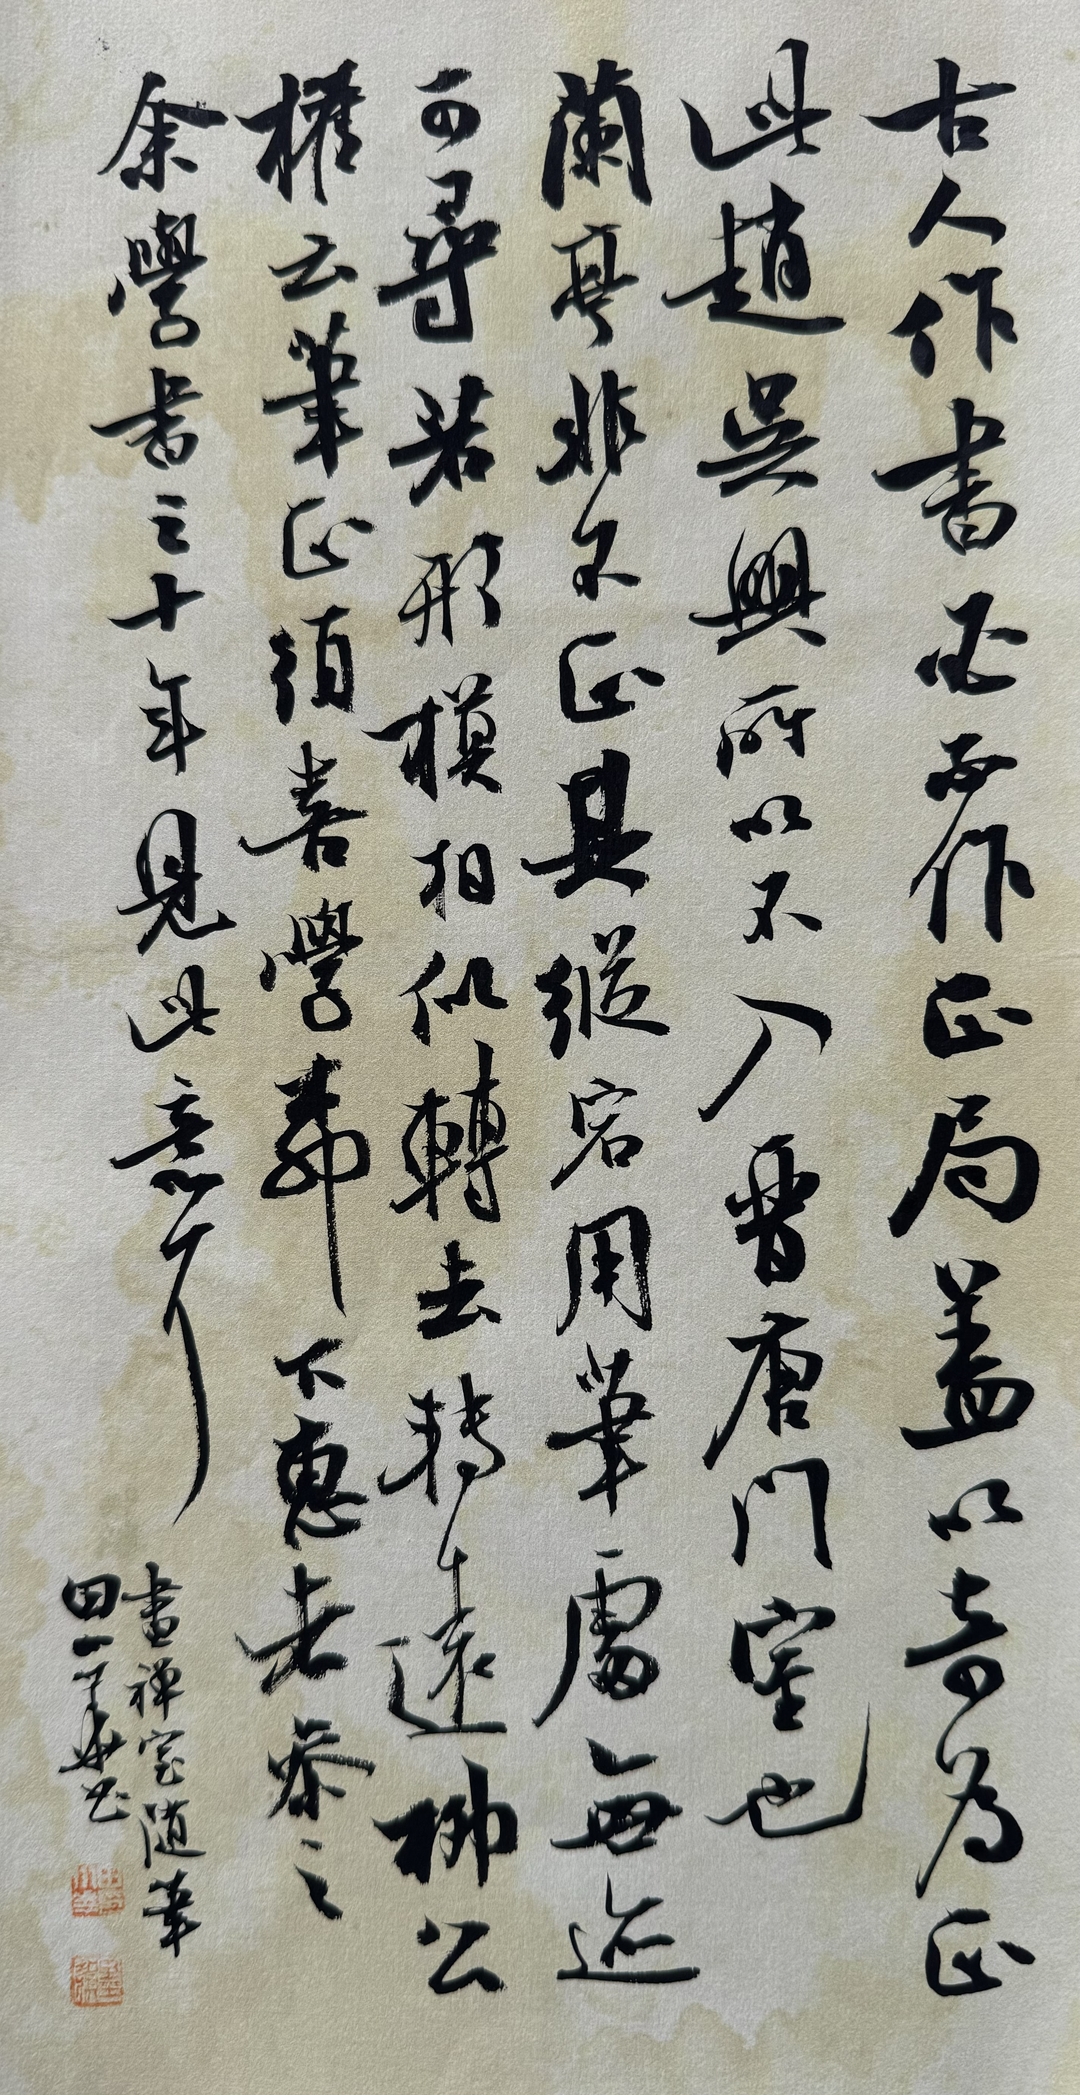 古人作書必不作正局盖以奇為正
此趙吳興所以不入晉唐門室也
蘭亭非不正其縱宕用筆處無迹
可尋若形模相似轉去轉遠柳公
權云筆正須善學柳下惠者参之
余學書三十年見此意耳
畫禅室随筆
田書